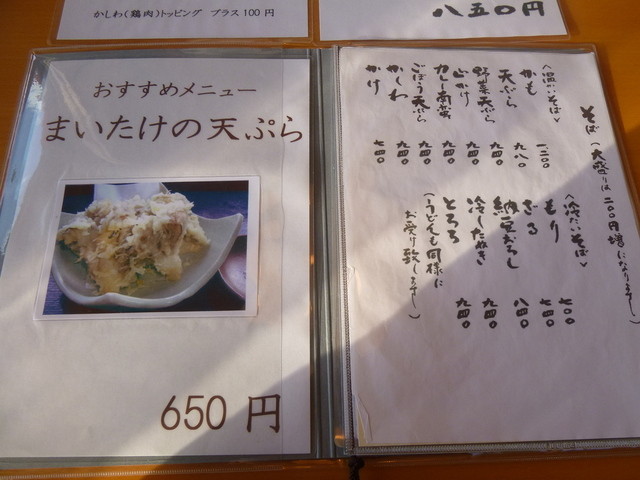 かしわ(鶏肉)トッピング プラス100円
八五〇円
おすすめメニュー
まいたけの天ぷら
650 円
そば(大盛りは二〇〇円増になります。)
〈温かいそば〉
かも 一二〇〇
天ぷら 九八〇
野菜天ぷら 九四〇
山かけ 九四〇
カレー南蛮 九四〇
ごぼう天ぷら 九四〇
かしわ 九四〇
かけ 七四〇
〈冷たいそば〉
もり 七〇〇
ざる 七四〇
納豆おろし 八四〇
冷したぬき 九四〇
とろろ 九四〇
(うどんも同様に
お受け致します。)